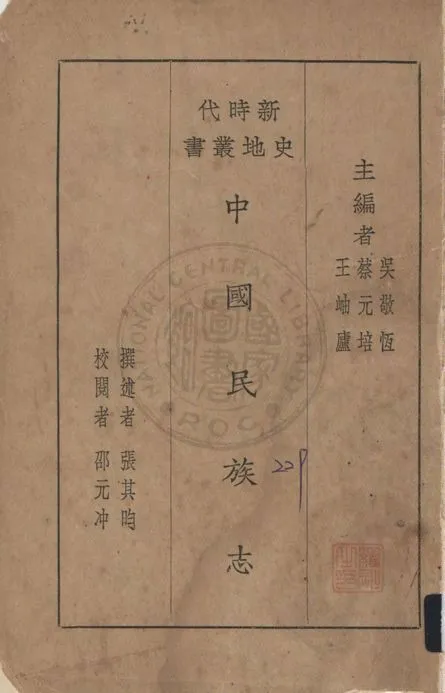 主編者
吳敬恆
蔡元培
王岫廬
新時代
史地叢書
中國民族志
撰述者 張其昀
校閱者 邵元冲
NATIONAL CENTRAL LIBRARY
R.O.C.
國家圖書館
229